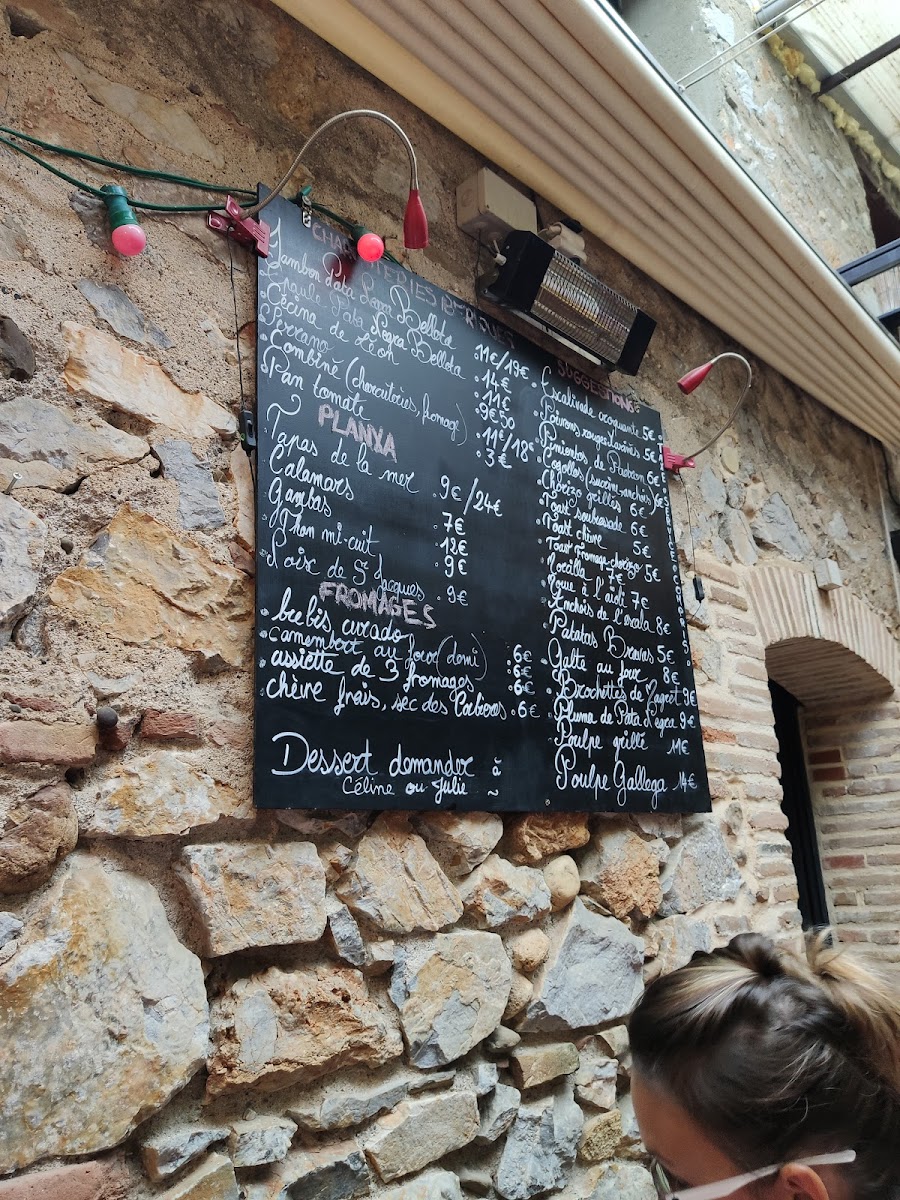 CHARCUTERIES IBERIQUES
Jambon Pata Negra Bellota 11€/19€
Epaule Pata Negra Bellota 14€
Cécina de Léon 11€
Serrano 9€50
Combiné (charcuteries, fromage) 11€/18€
Pan tomate 3€
PLANXA
Tapas de la mer 9€/24€
Calamars 7€
Gambas 12€
Thon mi-cuit 9€
Noix de St Jacques 9€
FROMAGES
brebis curado 6€
camembert au four (demi) 6€
assiette de 3 fromages 6€
chèvre frais, sec des Corbières 6€
Dessert demander à
Céline ou Julie ~
SUGGESTIONS
Escalivade croquante 5€
Poivrons rouges marinés 5€
Pimientos de Padron 5€
Cogollos (sucrine, anchois) 6€
Chorizo grillés 6€
Toast soubressade 6€
Toast chèvre 5€
Toast fromage-chorizo 5€
Morcilla 7€
à l'aïoli 7€
Anchois de l'escala 8€
Patatas Bravas 5€
Galte au four 8€
Brochettes de Magret 9€
Pluma de Pata Negra 9€
Poulpe grillé 11€
Poulpe Gallega 14€